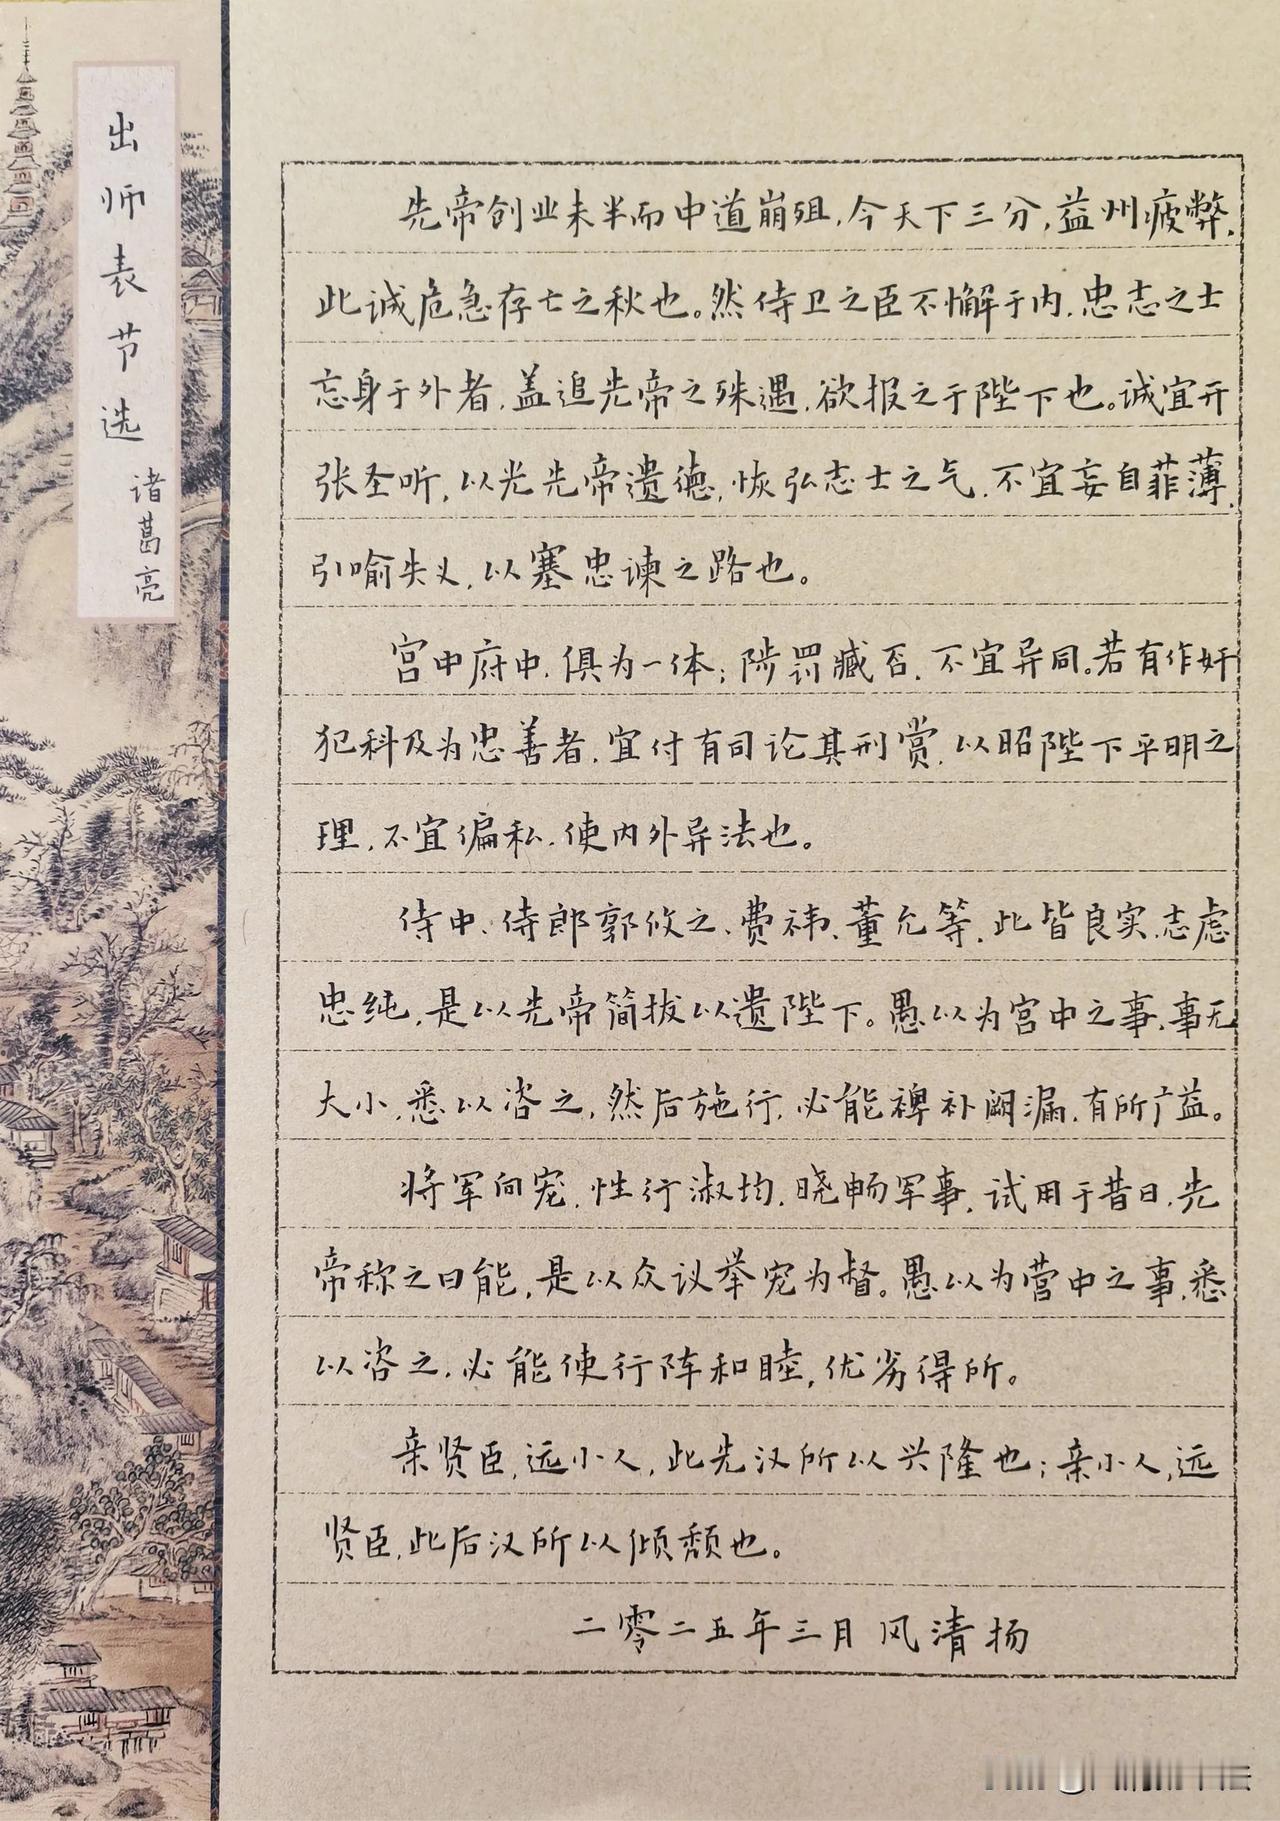 出师表节选
诸葛亮
先帝创业未半而中道崩殂，今天下三分，益州疲弊，
此诚危急存亡之秋也。然侍卫之臣不懈于内，忠志之士
忘身于外者，盖追先帝之殊遇，欲报之于陛下也。诚宜开
张圣听，以光先帝遗德，恢弘志士之气，不宜妄自菲薄，
引喻失义，以塞忠谏之路也。
宫中府中，俱为一体；陟罚臧否，不宜异同。若有作奸
犯科及为忠善者，宜付有司论其刑赏，以昭陛下平明之
理，不宜偏私，使内外异法也。
侍中、侍郎郭攸之、费祎、董允等，此皆良实，志虑
忠纯，是以先帝简拔以遗陛下。愚以为宫中之事，事无
大小，悉以咨之，然后施行，必能裨补阙漏，有所广益。
将军向宠，性行淑均，晓畅军事，试用于昔日，先
帝称之曰能，是以众议举宠为督。愚以为营中之事，悉
以咨之，必能使行阵和睦，优劣得所。
亲贤臣，远小人，此先汉所以兴隆也；亲小人，远
贤臣，此后汉所以倾颓也。
二零二五年三月 风清扬